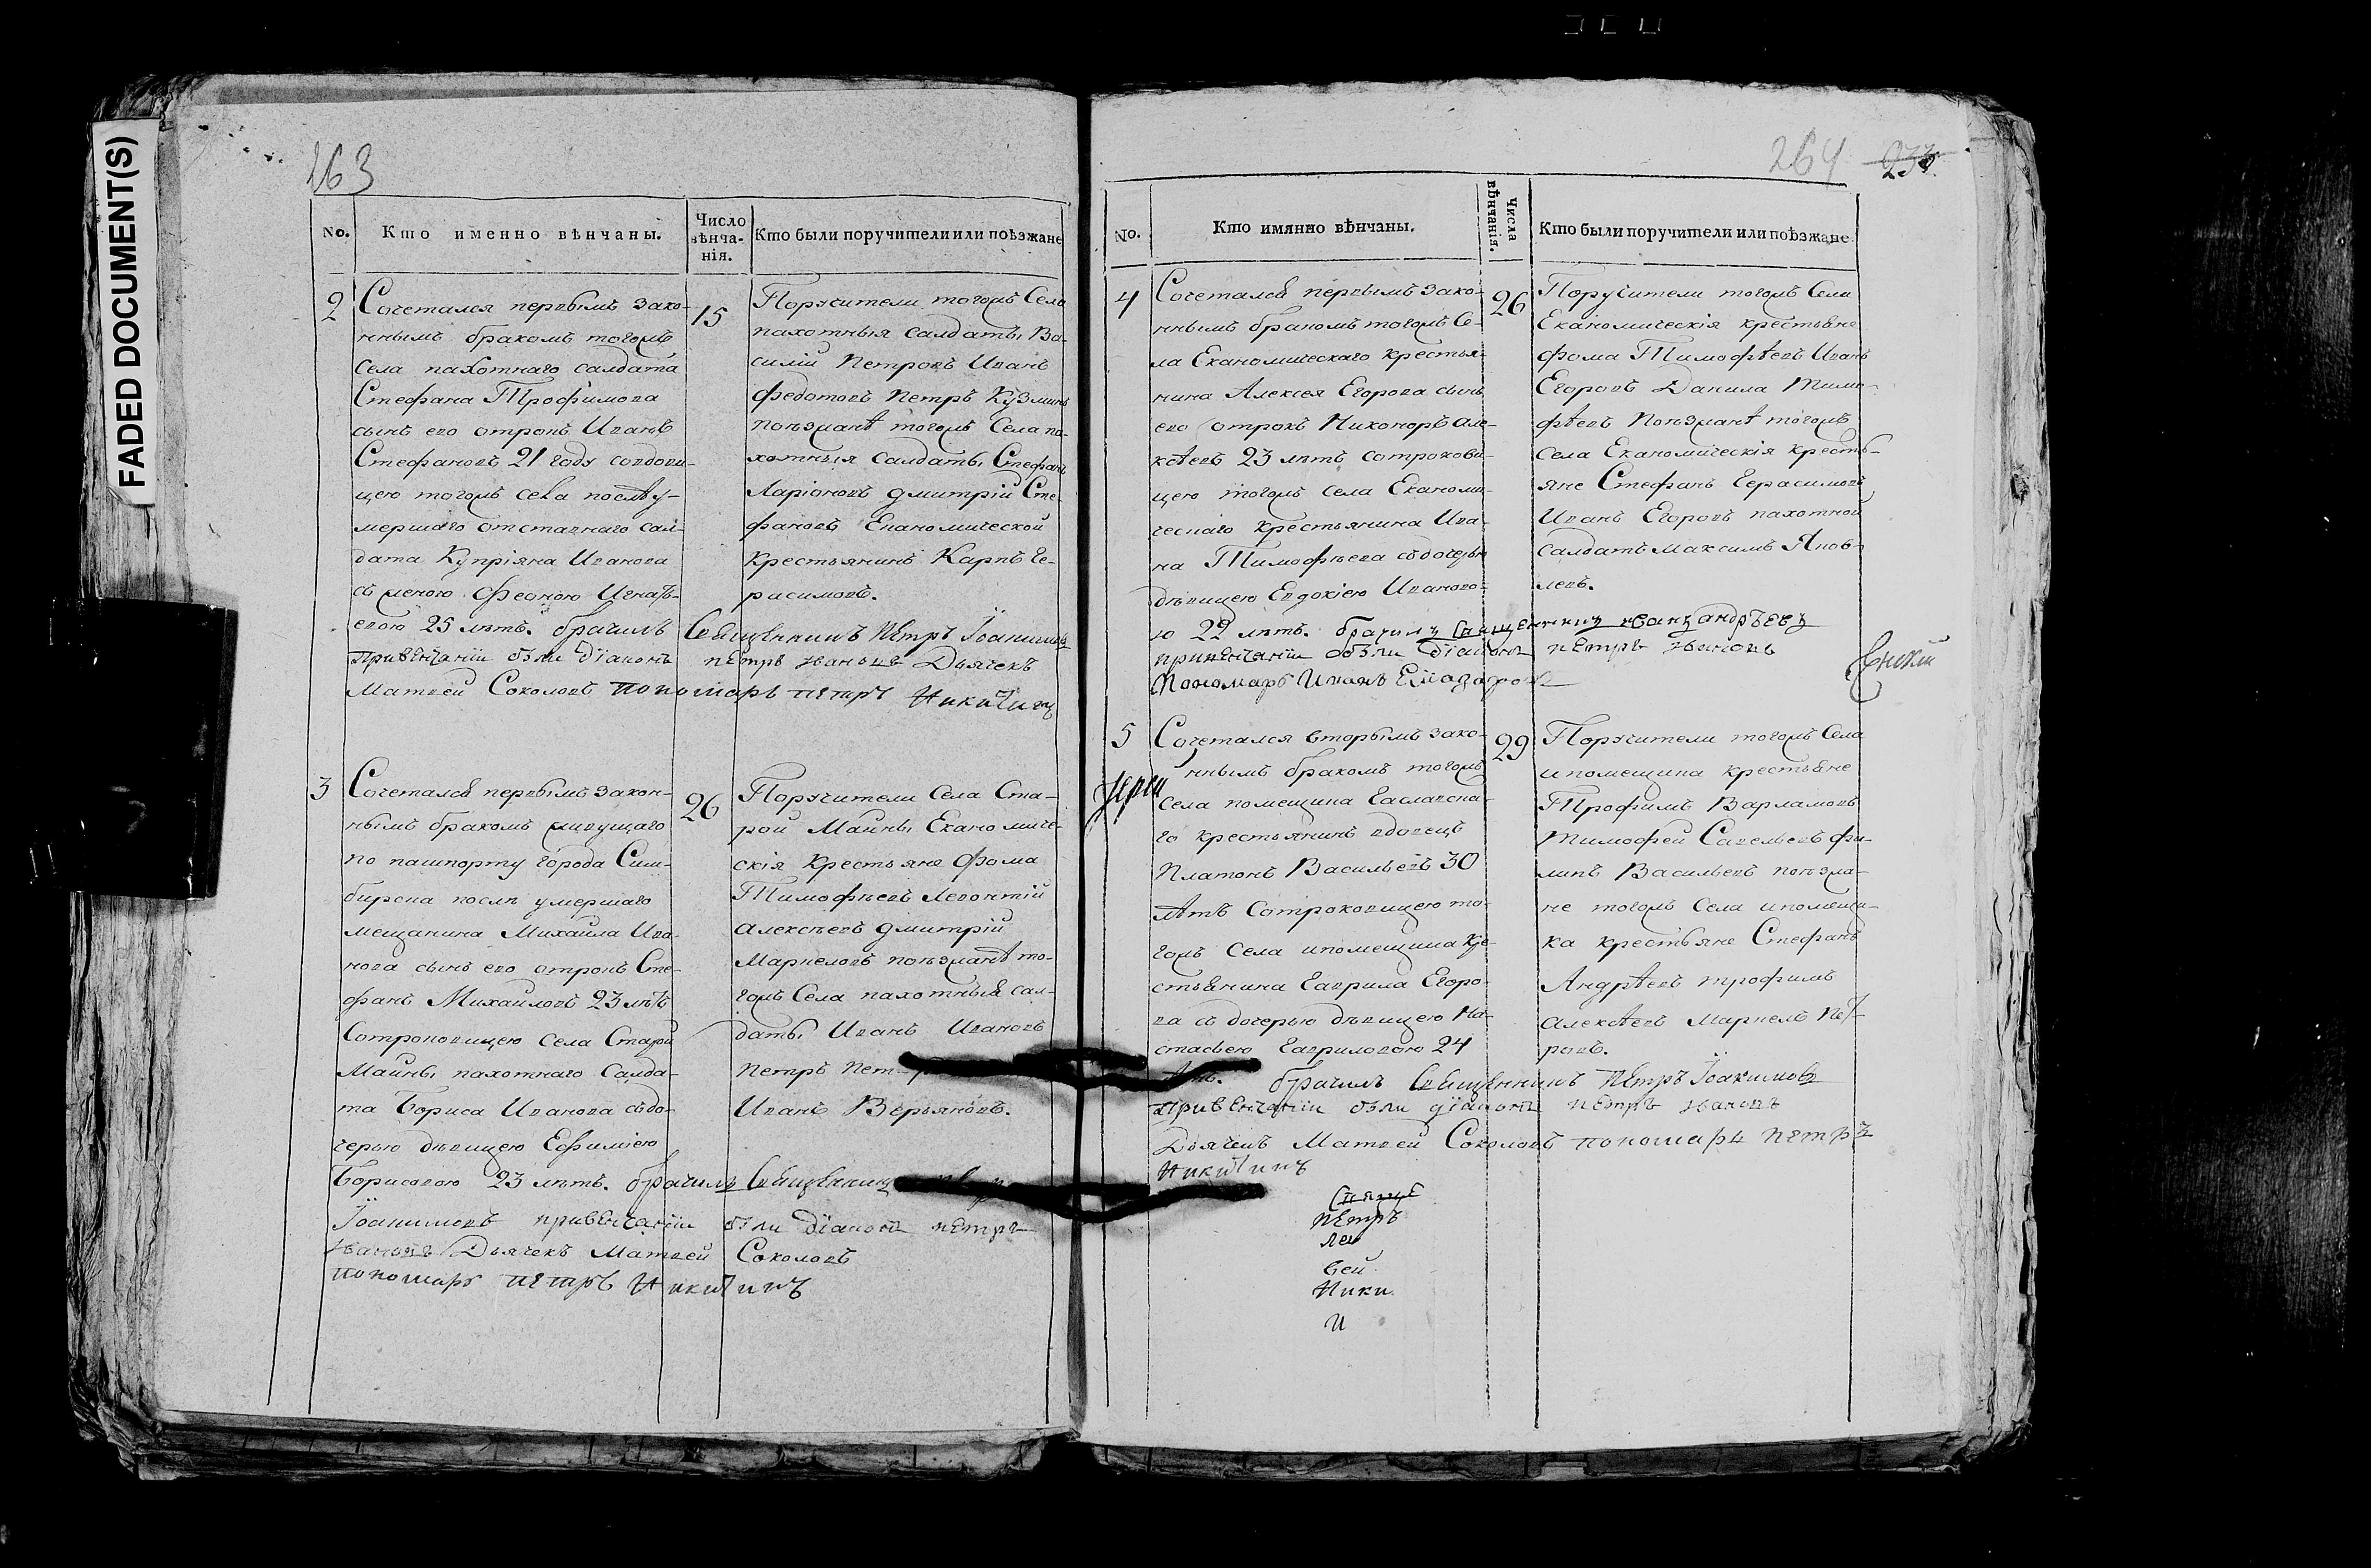 FADED DOCUMENT(S)
263
No.
Кто именно вѣнчаны.
Число
вѣнча-
нія.
Кто были поручители или поѣзжане
2
Сочетался первымъ зако-
ннымъ бракомъ тогожъ
села пахотнаго салдата
Стефана Трофимова
сынъ его отрокъ Иванъ
Стефановъ 21 году совдови-
цею тогожъ села послѣ у-
мершаго отставнаго сал-
дата Купріяна Иванова
съ женою Феоною Игнать-
евою 25 лѣтъ. брачилъ Священникъ Петръ Іоакимовъ
привенчаніи были діаконъ петръ ивановъ Дьячекъ
Матвей Соколовъ пономарь петръ Никитинъ
15
Поручители тогожъ Села
пахотныя салдаты Ва-
силій Петровъ Иванъ
Федотовъ Петръ Кузминъ
поезжанѣ тогожъ Села па-
хотныя салдаты Стефанъ
Ларіоновъ Дмитрій Сте-
фановъ Економической
крестьянинъ Карпъ Ге-
расимовъ.
3
Сочетался первымъ закон-
нымъ бракомъ живущаго
по пашпорту города Сим-
бирска послѣ умершаго
мещанина Михаила Ива-
нова сынъ его отрокъ Сте-
фанъ Михайловъ 23 лѣтъ
Сотроковицею села Старой
Майны пахотнаго Салда-
та Бориса Иванова съдо-
черью дѣвицею Ефимiею
Борисовою 23 лѣтъ. брачилъ Священникъ
Іоакимовъ привенчаніи были діаконъ петръ
ивановъ Дьячекъ Матвей Соколовъ
пономарь петръ Никитинъ
26
Поручители Села Ста-
рой Майны Економиче-
скія крестьяне Фома
Тимофеевъ Левонтій
Алексѣевъ Дмитрій
Маркеловъ поезжанѣ то-
гожъ Села пахотныя сал-
даты Иванъ Ивановъ
Петръ Пет
Иванъ Верьяновъ.
264 233
No.
Кто имянно вѣнчаны.
Числа
вѣнчанія.
Кто были поручители или поѣзжане
4
Сочетался первымъ зако-
ннымъ бракомъ тогожъ Се-
ла Економическаго крестья-
нина Алексея Егорова сынъ
его отрокъ Никоноръ Але-
ксѣевъ 23 лѣтъ сотрокови-
цею тогожъ села Економи-
ческаго крестьянина Ива-
на Тимофѣева съ дочерью
дѣвицею Евдокіею Иваново-
ю 22 лѣтъ. брачилъ Священникъ иванъ андрѣевъ
привенчаніи были діаконъ петръ ивановъ
Пономарь Иванъ
26
Поручители тогожъ Села
Економическія крестьяне
Фома Тимофѣевъ Иванъ
Егоровъ Данила Тимо-
фѣевъ Поезжанѣ тогожъ
села Економическія кресть-
яне Стефанъ Герасимовъ
Иванъ Егоровъ пахотной
салдатъ Максимъ Яков-
левъ.
5
Іерей
Сочетался вторымъ зако-
ннымъ бракомъ тогожъ
села помещика
го крестьянинъ вдовецъ
Платонъ Васильевъ 30
лѣтъ Сотроковицею то-
гожъ Села ипомещика кре-
стьянина Гаврила Егоро-
ва съ дочерью дѣвицею На-
стасьею Гавриловою 24
лѣтъ. брачилъ Священникъ Петръ Іоакимовъ
привенчаніи были діаконъ петръ ивановъ
Дьячекъ Матвей Соколовъ пономарь петръ
Никитинъ
29
Поручители тогожъ Села
ипомещика крестьяне
Трофимъ Варламовъ
Тимофей Савельевъ Фи-
липъ Васильевъ поезжа-
не тогожъ Села ипомещи-
ка крестьяне Стефанъ
Андрѣевъ трофимъ
Алексѣевъ Маркелъ Пет-
ровъ.
Петръ
Лев
вей
Ники
И